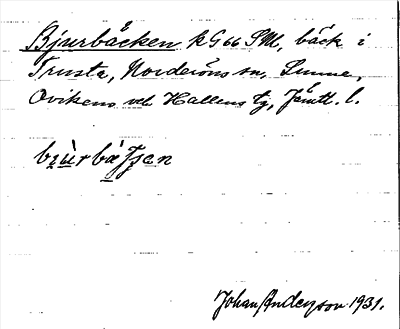 Bjurbäcken k G 66 SM, bäck i
Trusta, Norderöns sn, Sunne,
Ovikens och Hallens tg, Jämtl. l.
Johan Anderson 1931.